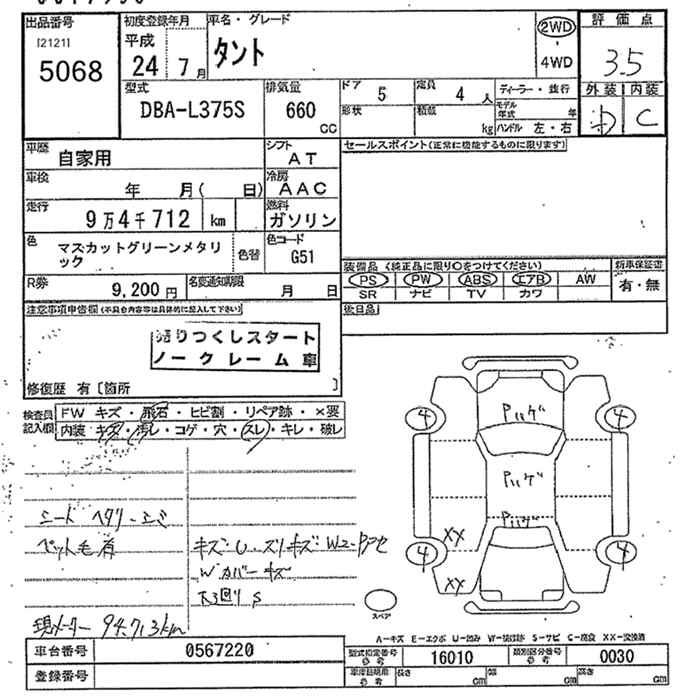 出品番号
[2121]
5068
初度登録年月
平成
24 7月
車名・グレード
タント
2WD
・
4WD
評価点
3.5
外装 内装
C
型式
DBA-L375S
排気量
660
CC
ドア 5
定員 4 人
形状
積載 kg
ディーラー・並行
モデル年式 年
ハンドル 左・右
車歴
自家用
シフト
AT
セールスポイント(正常に機能するものに限ります)
車検
年 月( 日)
冷房
AAC
走行
9万4千712 km
燃料
ガソリン
色
マスカットグリーンメタリック
色替
色コード
G51
装備品 (純正品に限り○をつけてください)
新車保証書
PS PW ABS エアB AW
有・無
SR ナビ TV カワ
R券
9,200円
名変通知期限
月 日
後日品
注意事項申告欄(不具合内容等は具体的に記入して下さい)
売りつくしスタート
ノークレーム車
修復歴 有〔箇所 〕
検査員記入欄
FW キズ・飛石・ヒビ割・リペア跡・×要
内装・キズ・汚レ・コゲ・穴・スレ・キレ・破レ
4 4
4 4
XX
XX
シート ヘタリ-シミ
ペット毛有
キズ・U-スリキズ
W カバーキズ
下廻り S
現メーター 94713km
スペア
A-キズ E-エクボ U-凹み W-補修跡 S-サビ C-腐食 XX-交換済
車台番号
0567220
型式指定番号
参考
16010
類別区分番号
参考
0030
登録番号
車庫証明用
参考
長さ cm
幅 cm
高さ cm